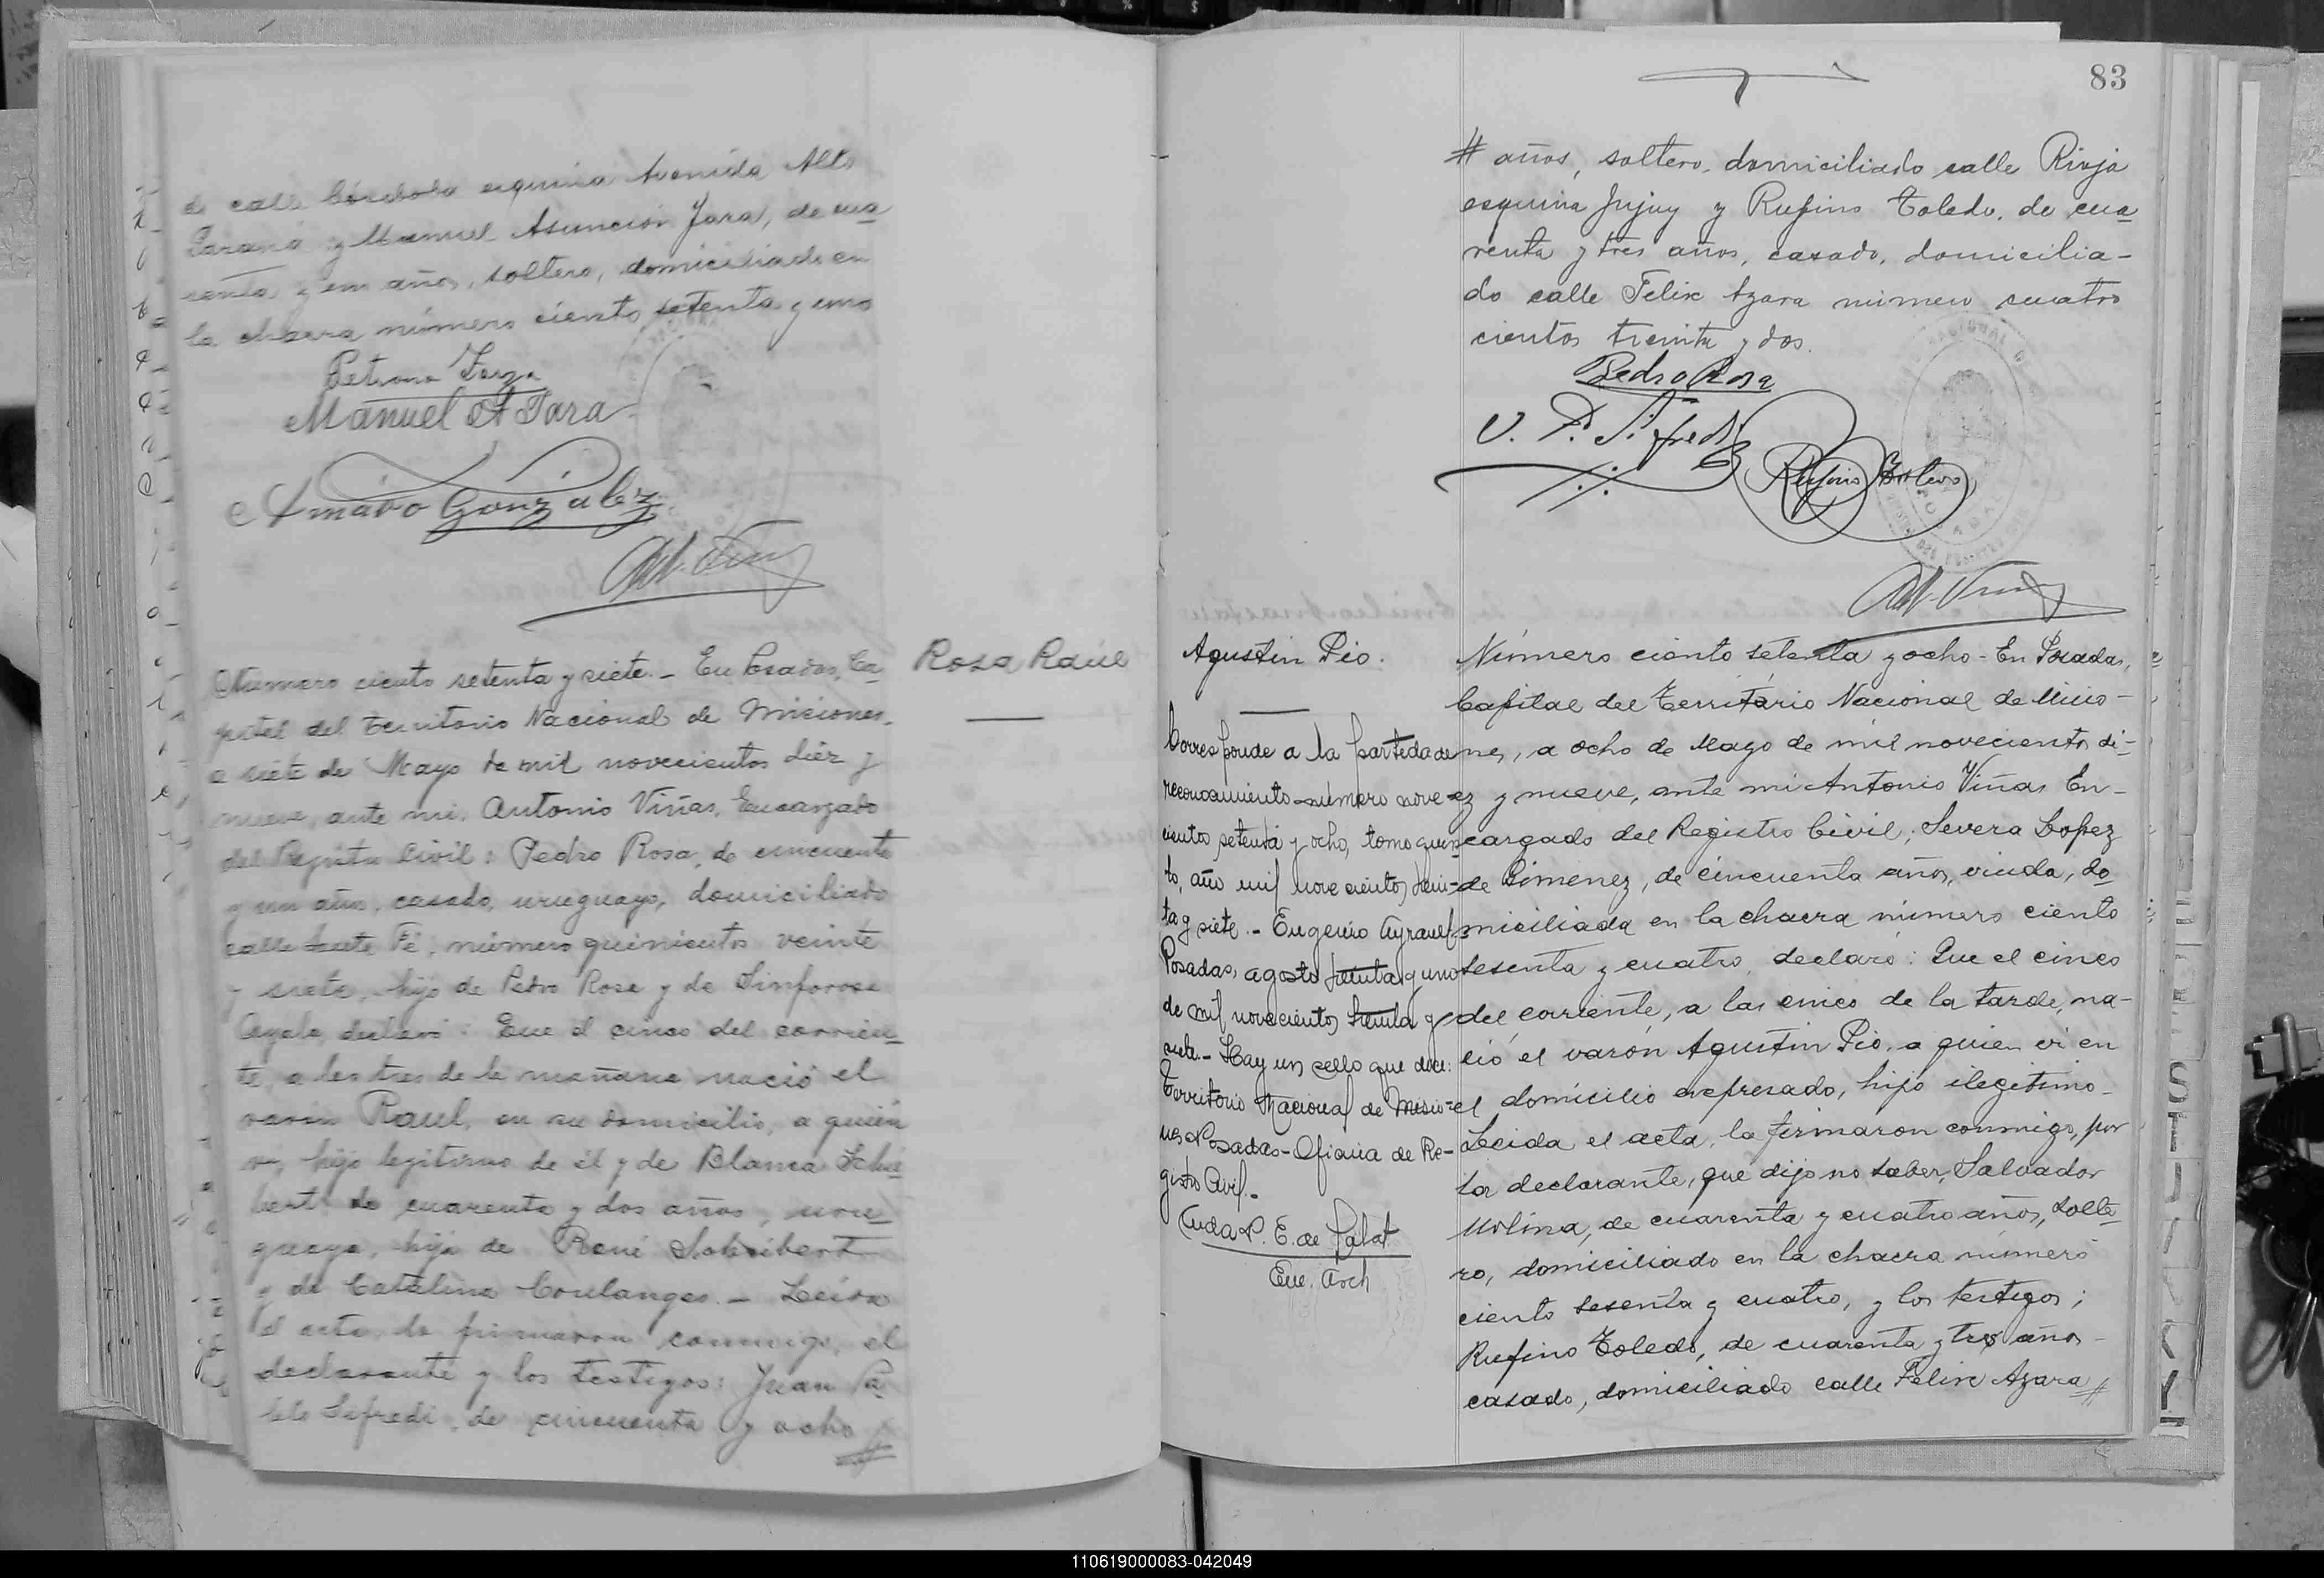 de calle Córdoba esquina Avenida Alto
Paraná y Manuel Asunción Jara, de cua
renta y un años, soltero, domiciliado en
la chacra número ciento setenta y uno
Manuel A Jara
Amado Gonzalez
Rosa Raúl
Número ciento setenta y siete.- En Posadas, Ca
pital del Territorio Nacional de Misiones,
a siete de Mayo de mil novecientos diéz y
nueve, ante mi, Antonio Viñas, Encargado
del Registro Civil: Pedro Rosa, de cincuenta
y un años, casado, uruguayo, domiciliado
calle Santa Fé, número quinientos veinte
y siete, hijo de Pedro Rosa y de Sinforosa
Ayala, declaró: Que el cinco del corrien
te, a las tres de la mañana nació el
varón Raul, en su domicilio, a quién
vi, hijo legítimo de él y de Blanca Schei
bert de cuarenta y dos años, uru
guaya, hija de René Scheibert
y de Catalina Coulanges.- Leida
el acta, la firmaron conmigo, el
declarante y los testigos: Juan Pa
blo Sifredi, de cincuenta y ocho #
83
# años, soltero, domiciliado calle Rioja
esquina Jujuy y Rufino Toledo, de cua
renta y tres años, casado, domicilia-
do calle Felix Azara número cuatro
cientos treinta y dos.
Pedro Rosa
Rufino Toledo
Agustin Pio.
Corresponde a la partida de
reconocimiento número nove-
cientos setenta y ocho, tomo quin
to, año mil novecientos trein-
ta y siete.- Eugenio
Posadas, agosto treinta y uno
de mil novecientos treinta y
siete.- Hay un sello que dice:
Territorio Nacional de Misio-
nes Posadas-Oficina de Re-
gistro Civil.-
Enc. Arch
Número ciento setenta y ocho - En Posadas,
Capital del Territorio Nacional de Misio-
nes, a ocho de Mayo de mil novecientos di-
ez y nueve, ante mi Antonio Viñas En-
cargado del Registro Civil, Severa Lopez
de Gimenez, de cincuenta años, viuda, do
miciliada en la chacra número ciento
sesenta y cuatro, declaró: Que el cinco
del corriente, a las cinco de la tarde, na-
ció el varón Agustin Pio, a quien vi en
el domicilio expresado, hijo ilegitimo-
Leida el acta, la firmaron conmigo, por
la declarante, que dijo no saber, Salvador
Molina, de cuarenta y cuatro años, solte
ro, domiciliado en la chacra número
ciento sesenta y cuatro, y los testigos;
Rufino Toledo, de cuarenta y tres años-
casado, domiciliado calle Felix Azara #
110619000083-042049